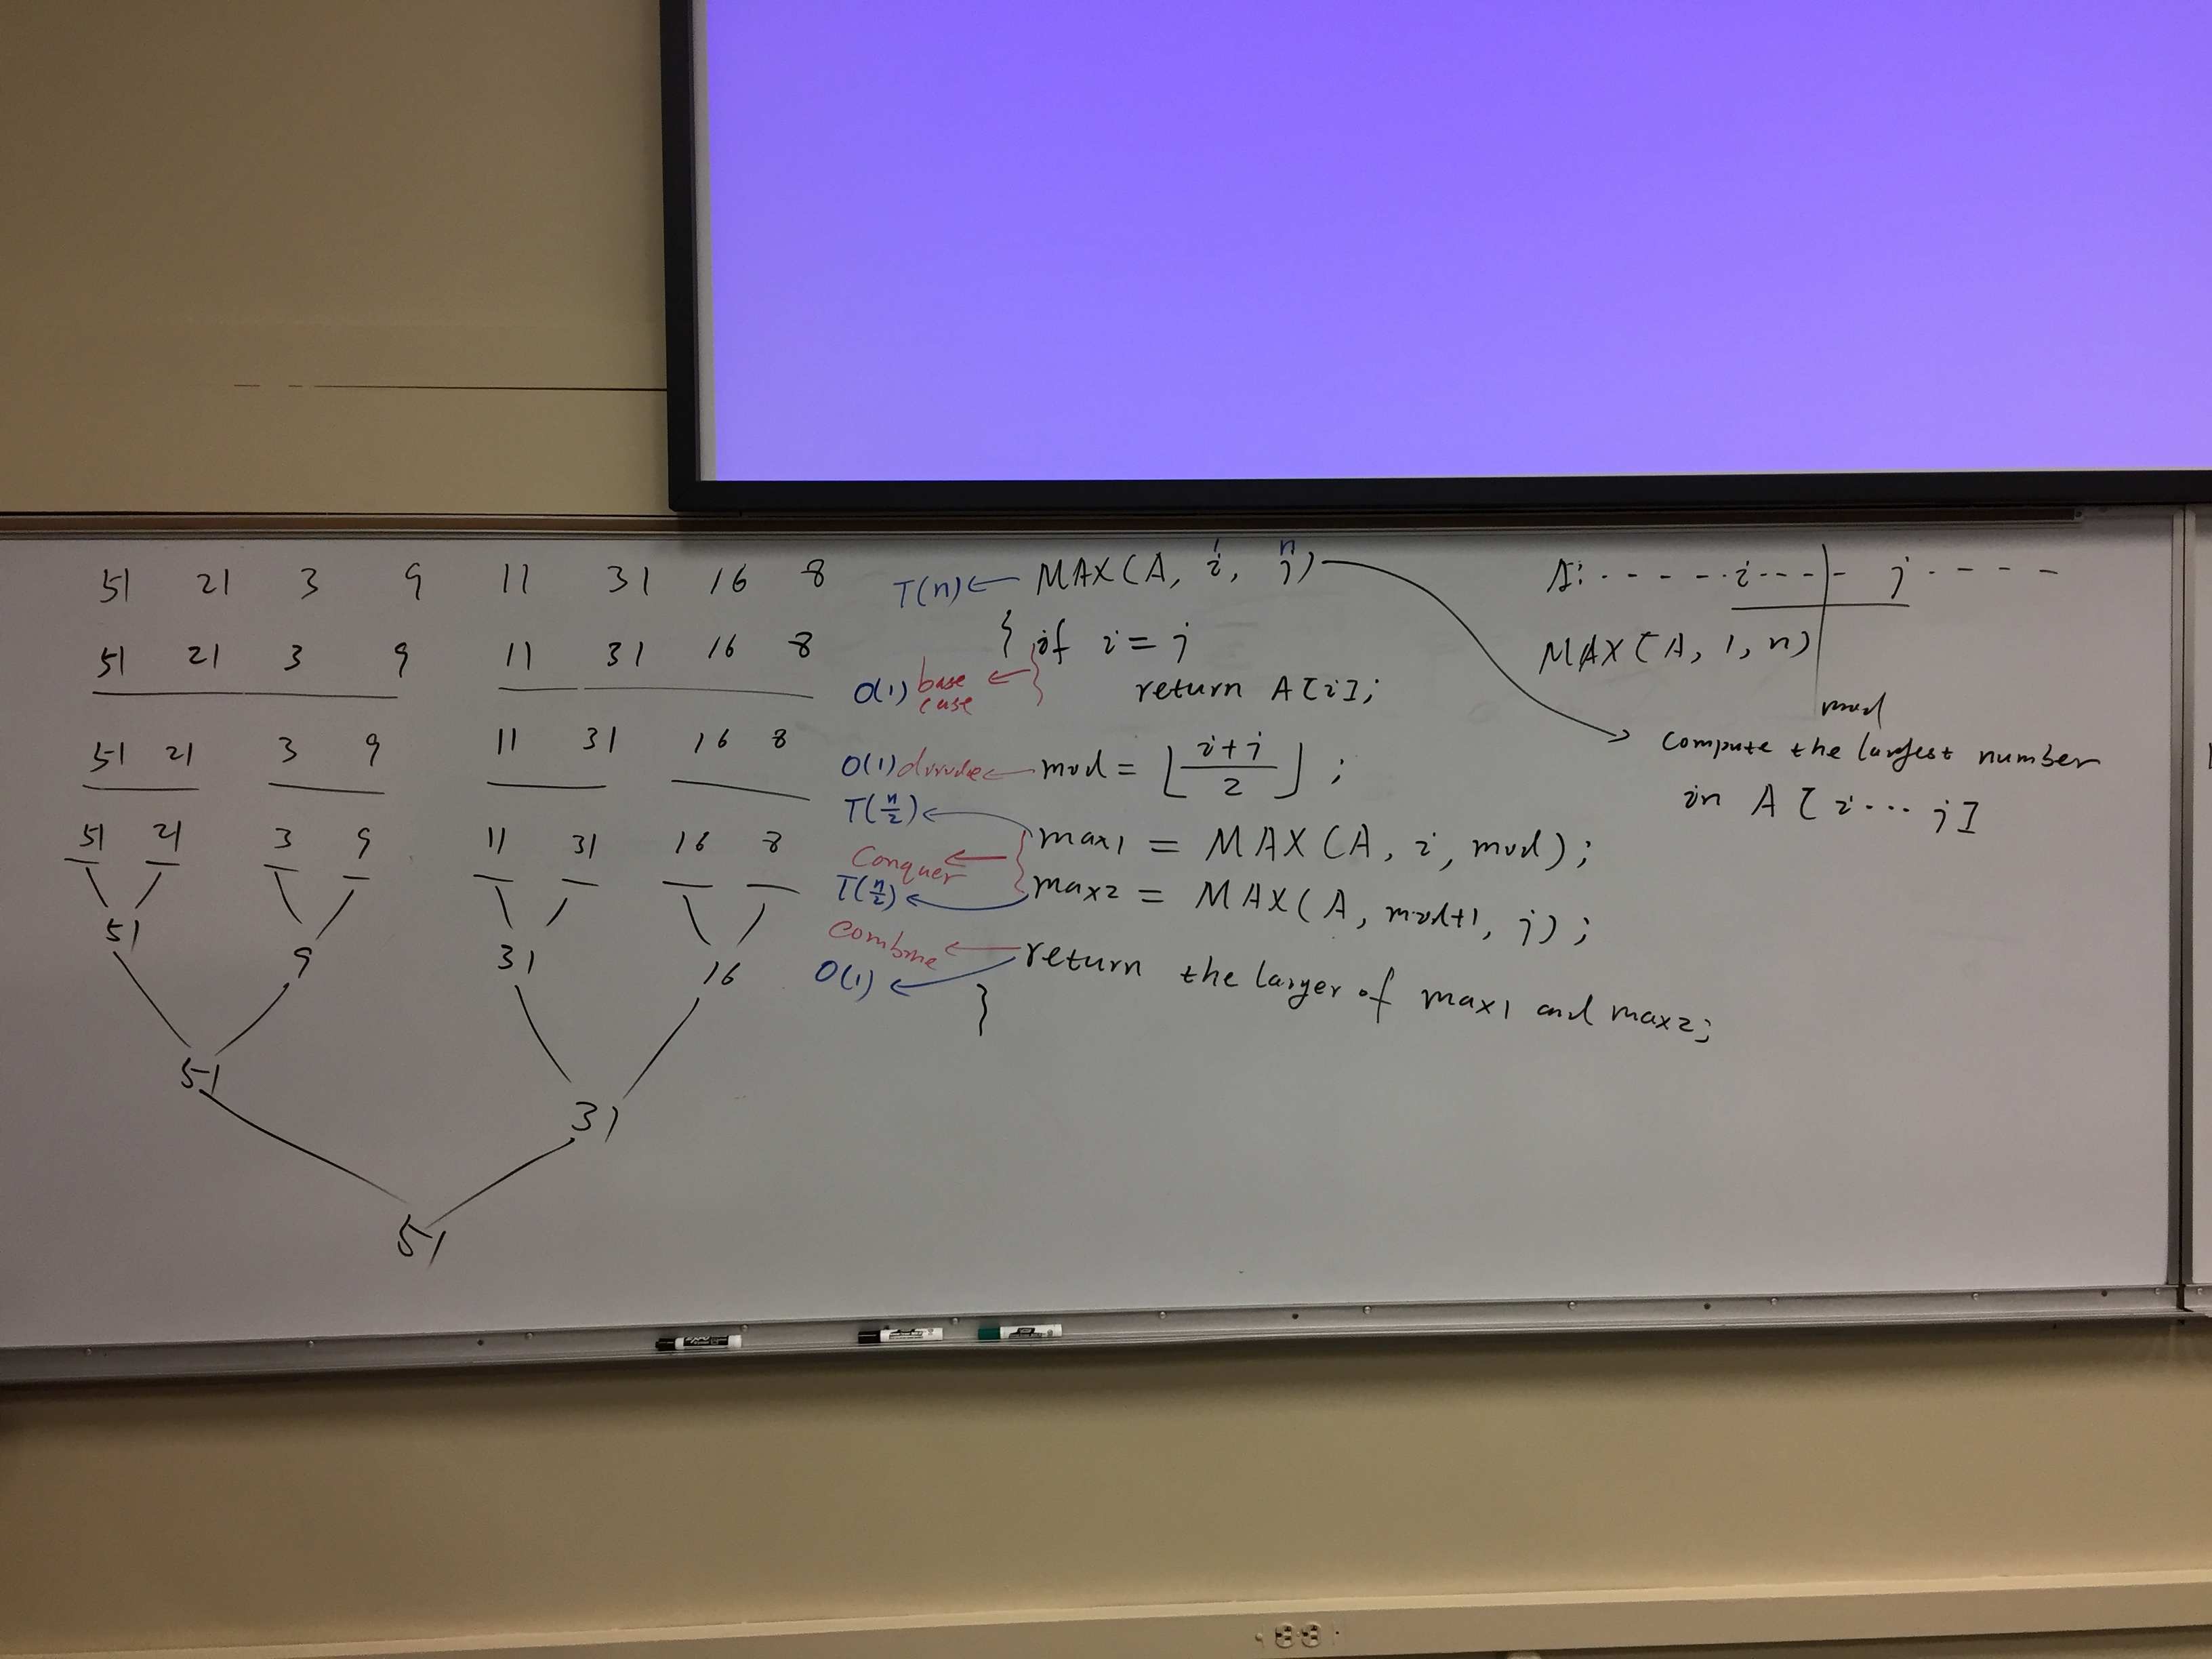 51 21 3 9 11 31 16 8
51 21 3 9 11 31 16 8
51 21 3 9 11 31 16 8
51 21 3 9 11 31 16 8
51 9 31 16
51 31
51
1 n
T(n) ← MAX(A, i, j)
{ if i = j
O(1) base case ←
return A[i];
O(1) divide ← mid = ⌊(i+j)/2⌋ ;
T(n/2) ←
max1 = MAX(A, i, mid);
Conquer ←
T(n/2) ← max2 = MAX(A, mid+1, j);
combine ← return the larger of max1 and max2;
O(1) ←
}
A: - - - - - - i - - - - j - - - - -
MAX(A, 1, n)
mid
→ compute the largest number
in A[i ... j]